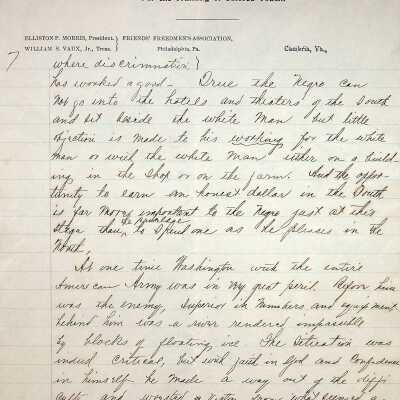 ELLISTON P. MORRIS, President.
WILLIAM S. VAUX, Jr., Treas.
FRIENDS' FREEDMEN'S ASSOCIATION,
Philadelphia, Pa.
Cambria, Va.,
7 where discrimination
has worked a good - True the Negro can
not go into the hotels and theaters of the South
and sit beside the white Man but little
objection is made to his working for the white
man or with the white man either on a build-
ing in the shop or on the farm. And the oppor-
tunity to earn an honest dollar in the South
is far more important to the Negro just at this
stage than the privilege to spend one as he pleases in the
North.
At one time Washington with the entire
American Army was in great peril. Before him
was the enemy, superior in numbers and equipment
behind him was a river rendered impassible
by blocks of floating ice The situation was
indeed critical, but with faith in God and Confidence
in himself he made a way out of the diffi
culty and